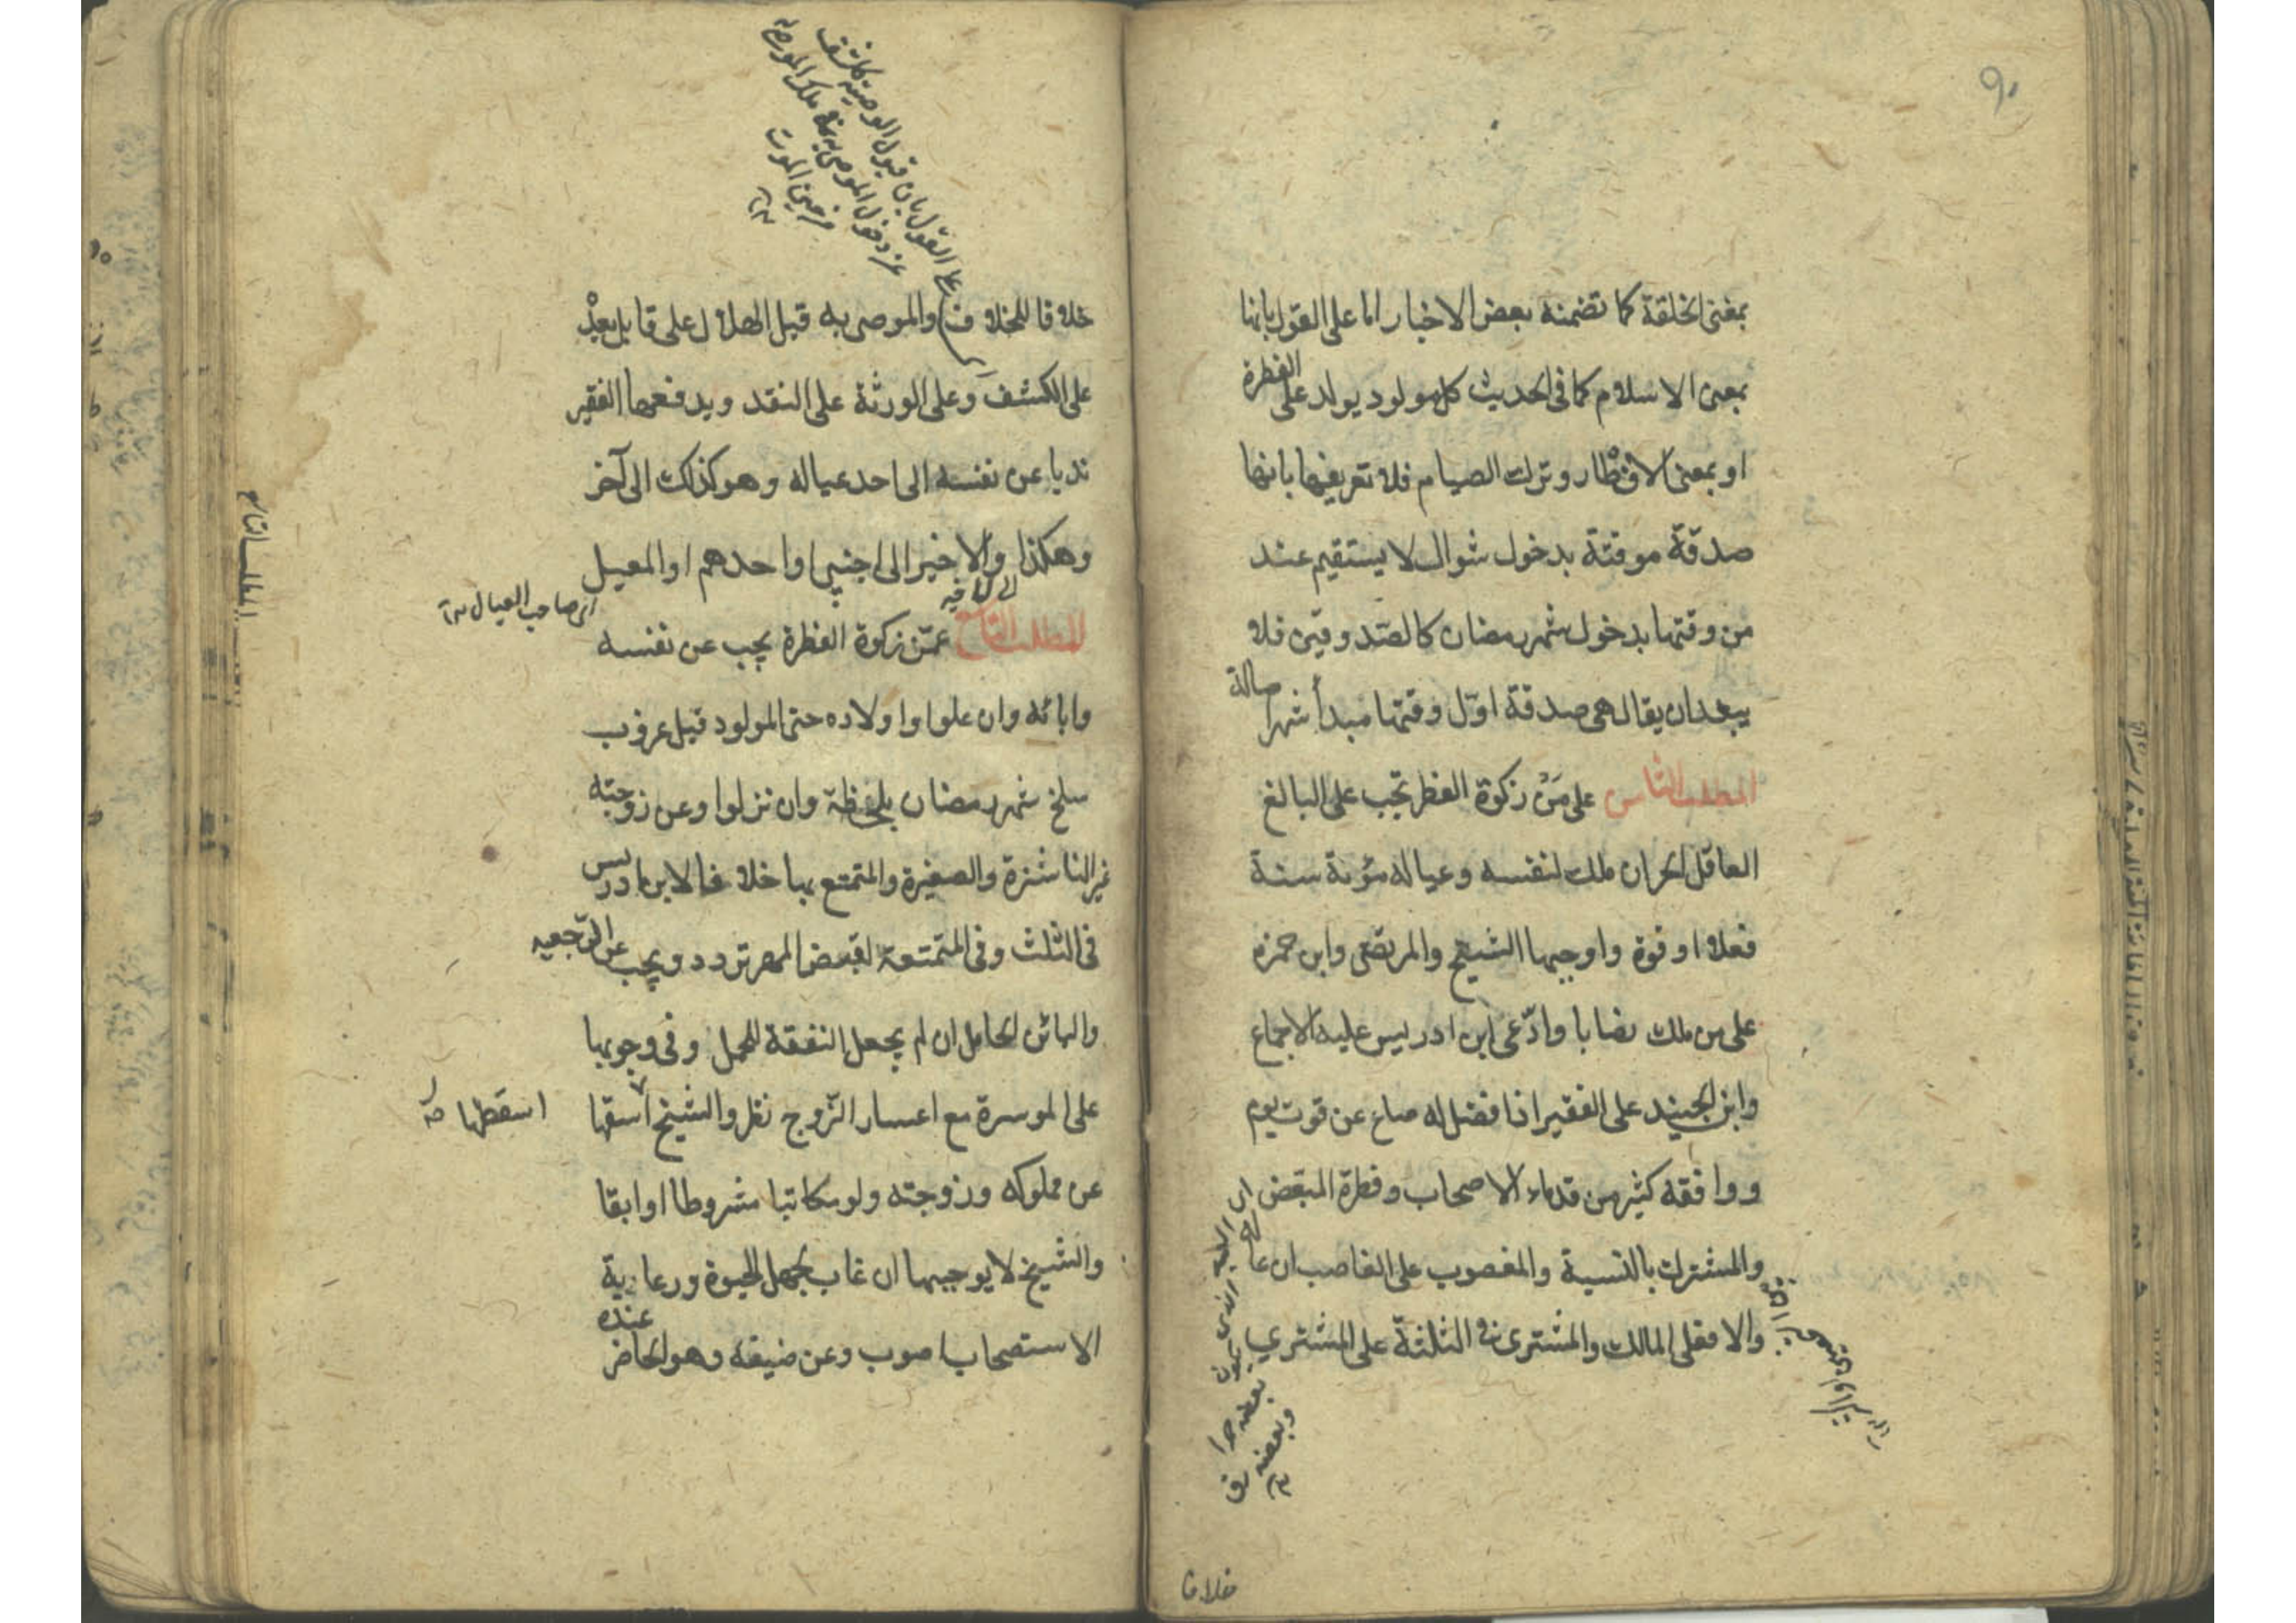 ٩٠
بمعنى الخلقة كما تضمنه بعض الاخبار اما على القول بانها
بمعنى الاسلام كما فى الحديث كل مولود يولد على الفطرة
او بمعنى الافطار وترك الصيام فلا تعريفها بانها
صدقة موقتة بدخول شوال لا يستقيم عند
من وقتها بدخول شهر رمضان كالصدوقين فلا
يبعد ان يقال هى صدقة اول وقتها مبدأ شهر
المطلب الثامن على مَنْ زكوة الفطر تجب على البالغ
العاقل الحر ان ملك لنفسه وعياله مؤنة سنة
فعلا او قوة واوجبها الشيخ والمرتضى وابن حمزه
على من ملك نصابا وادّعى ابن ادريس عليه الاجماع
وابن الجنيد على الفقير اذا فضل له صاع عن قوت يوم
ووافقه كثير من قدماء الاصحاب وفطرة المبعّض
والمشترك بالنسبة والمغصوب على الغاصب ان عا
والا فعلى المالك والمشترى فى الثلثة على المشتري
اى
الذى يكون
بعضه حرا
وبعضه رق
خلافا
على القول بان قبول الوصية كاشف
عن دخول الموصى به فى ملك الموصى له
من حين الموت
خلافا للخلاف والموصى به قبل الهلال على قابل بعدْ
على الكشف وعلى الورثة على النقد ويدفعها الفقير
ندبا عن نفسه الى احد عياله وهو كذلك الى آخر
وهكذا والاخير الى اجنبى او احدهم او المعيل
اى صاحب العيال
المطلب التاسع عمّن زكوة الفطرة يجب عن نفسه
وابائه وان علوا واولاده حتى المولود قبل غروب
سلخ شهر رمضان بلحظة وان نزلوا وعن زوجته
غير الناشزة والصغيرة والمتمتع بها خلافا لابن ادريس
فى الثلث وفى المتمتعة لقبض المهر تردد ويجب عن الرّجعيه
والبائن الحامل ان لم يجعل النفقة للحمل وفى وجوبها
على الموسرة مع اعسار الزّوج نظر والشيخ اسقها
اسقطها
عن مملوكه وزوجته ولو مكاتبا مشروطا او ابقا
والشيخ لا يوجبها ان غاب بجهل الحيوة ورعاية
الاستصحاب اصوب وعن ضيفه وهو الحاضر عنده